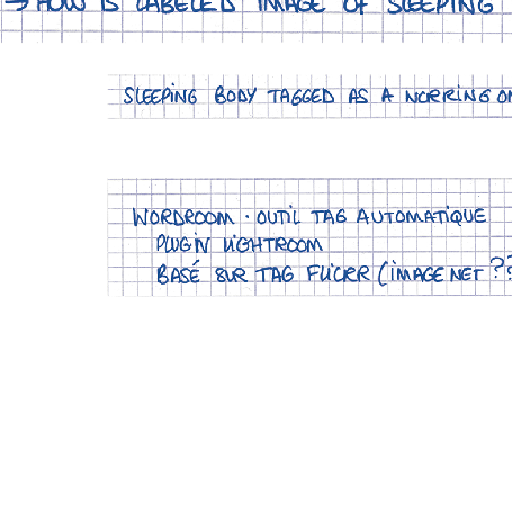 → HOW IS LABELED IMAGE OF SLEEPING
SLEEPING BODY TAGGED AS A WORKING
WORDROOM - OUTIL TAG AUTOMATIQUE
PLUGIN LIGHTROOM
BASÉ SUR TAG FLICKR (IMAGE NET ??